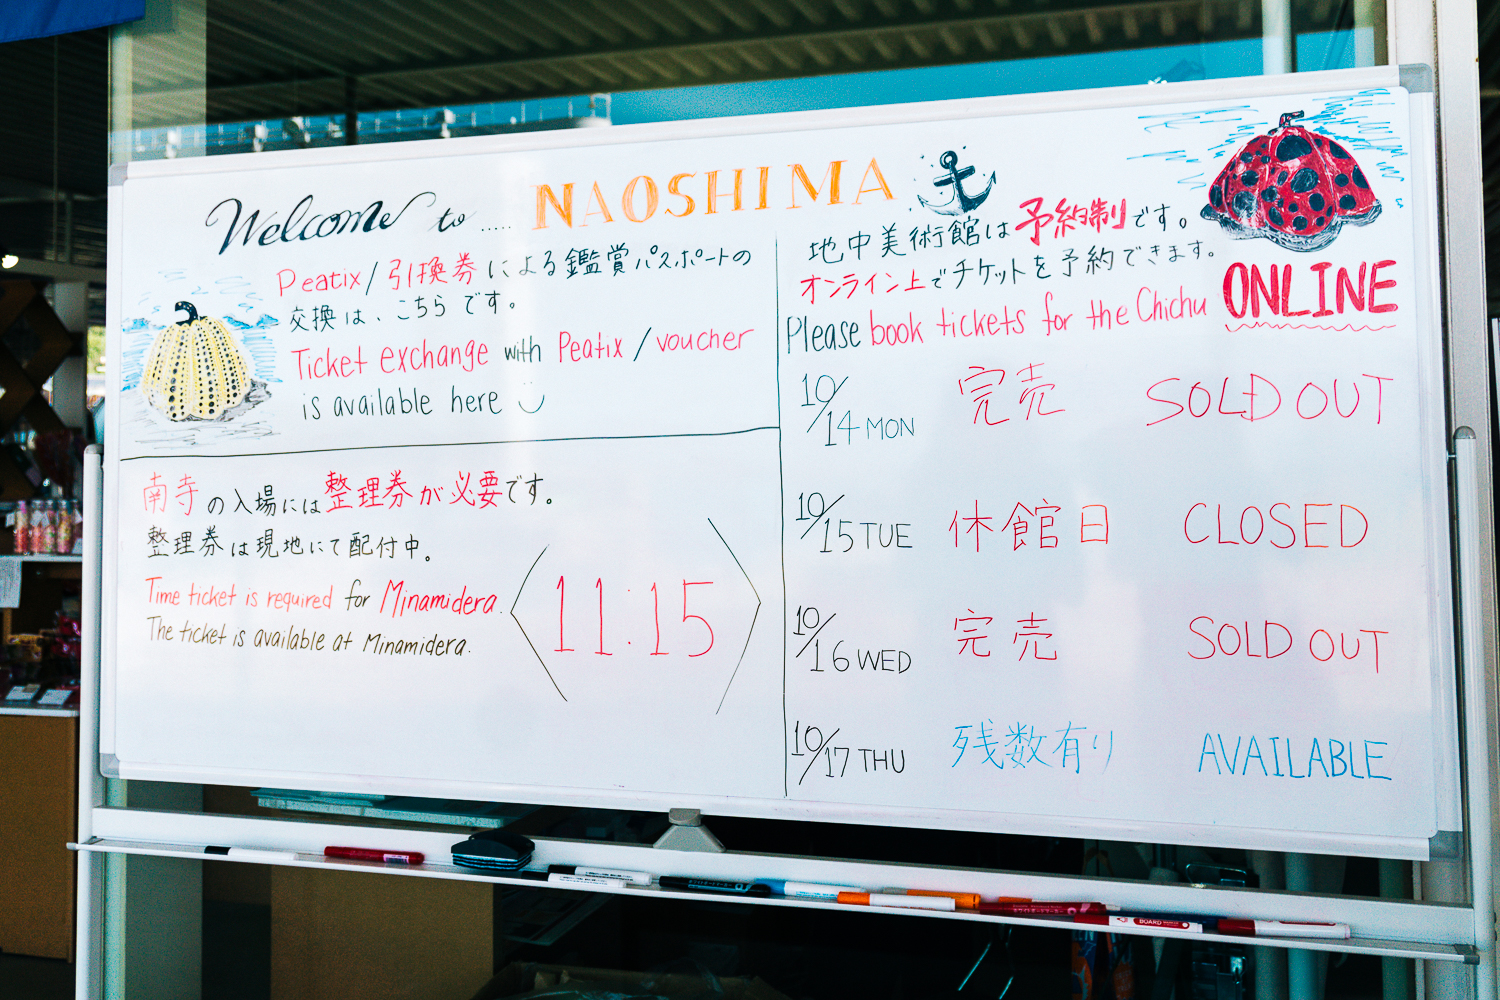 Welcome to ..... NAOSHIMA
Peatix/引換券による鑑賞パスポートの
交換は、こちらです。
Ticket exchange with Peatix/voucher
is available here
南寺の入場には整理券が必要です。
整理券は現地にて配付中。
Time ticket is required for Minamidera.
The ticket is available at Minamidera.
11:15
地中美術館は予約制です。
オンライン上でチケットを予約できます。
Please book tickets for the Chichu ONLINE
10/14 MON 完売 SOLD OUT
10/15 TUE 休館日 CLOSED
10/16 WED 完売 SOLD OUT
10/17 THU 残数有り AVAILABLE
BOARD